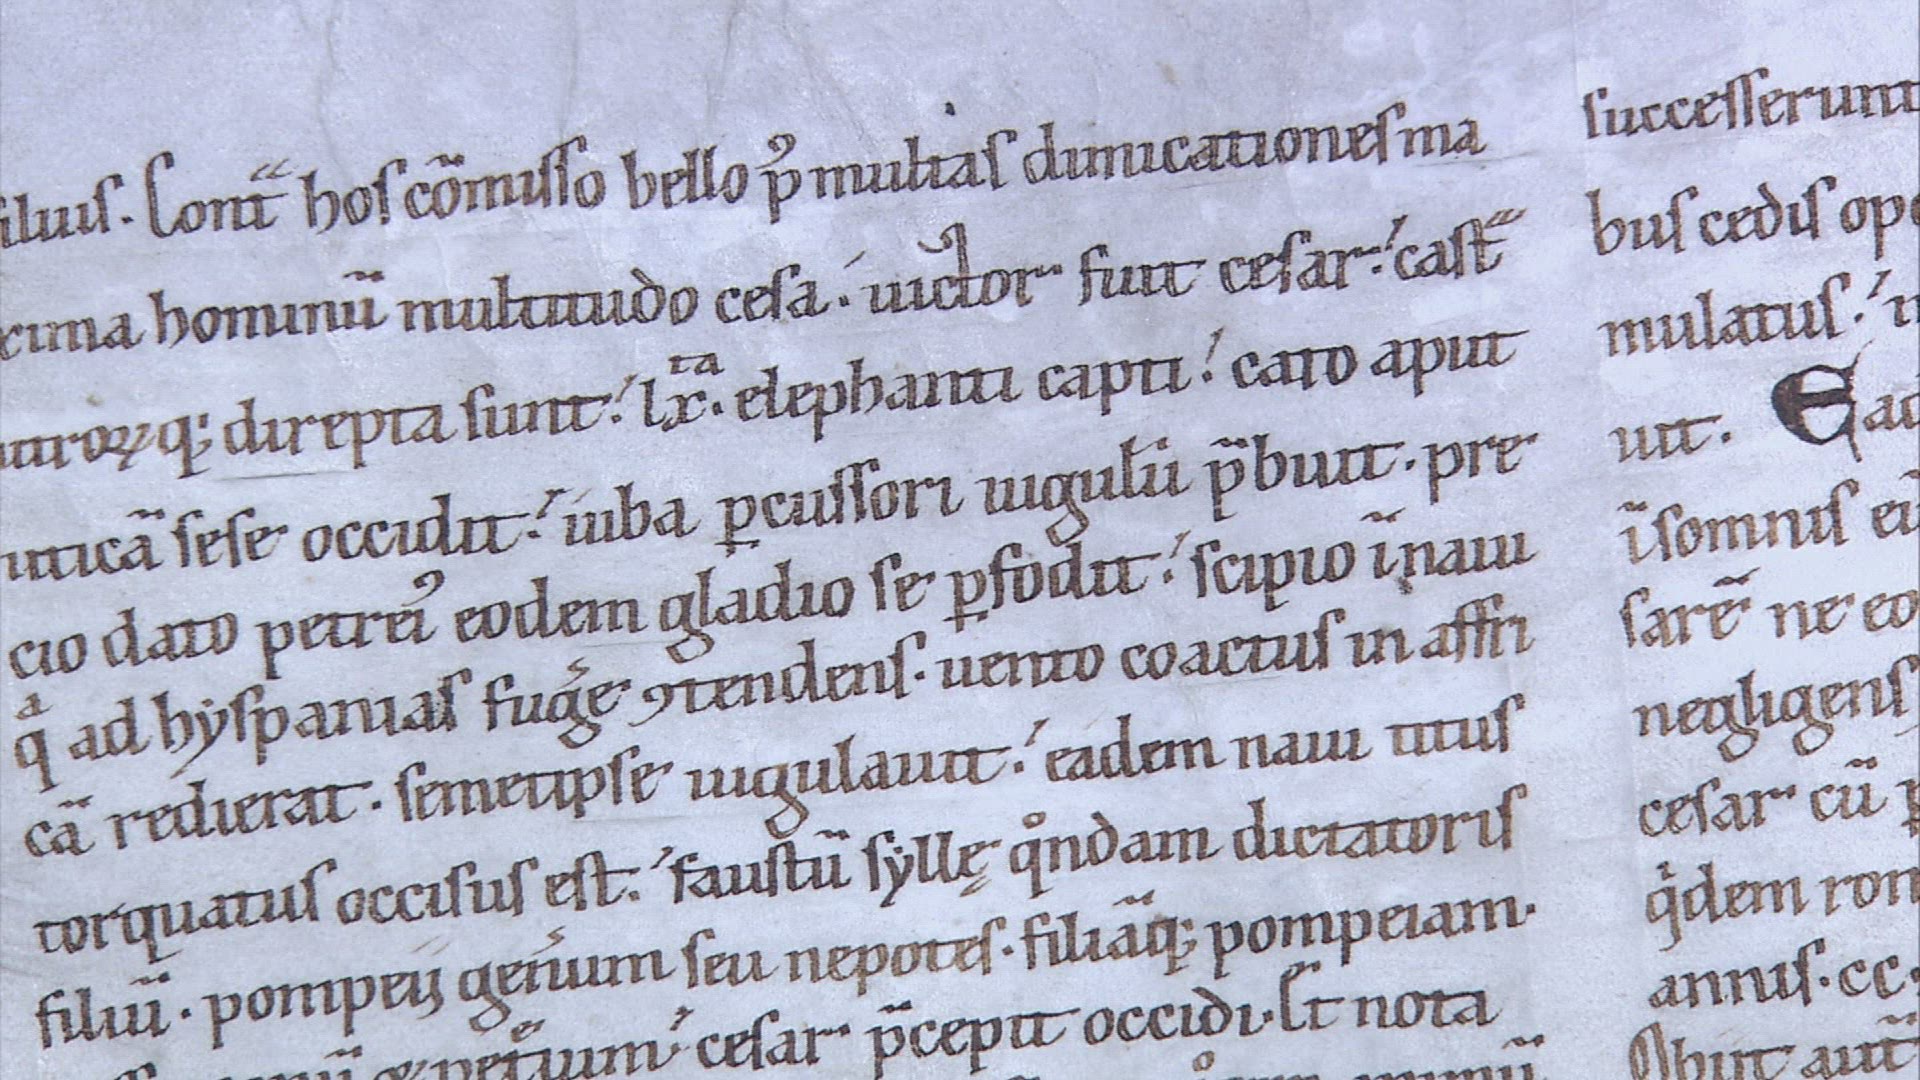 filius. Cont̄ hos cōmisso bello p᾽ multas dimicationes ma
xima hominū multitudo cesa. uictor fuit cesar. cast̄
utroꝝq; direpta sunt. lx.ta elephanti capti. cato aput
uticā sese occidit. iuba ꝑcussori iugulū p̄buit. pre
cio dato petrei᾽ eodem gladio se ꝑfodit. scipio ĩ naui
qͣ ad hyspanias fuḡe ꝯtendens. uento coactus in affri
cā redierat. semetipse iugulauit. eadem naui titus
torquatus occisus est. faustū syllę qͦndam dictatoris
filiū. pompeij gen̄um seu nepotes. filiāq; pompeiam.
cesar p̄cepit occidi. S̄t nota
successerunt
bus cedis
mulatus.
uit. Ead
ĩsomnis
sarē ne
negligens
cesar cū
qͥdem rom
annis. cc.
Obiit aut̄